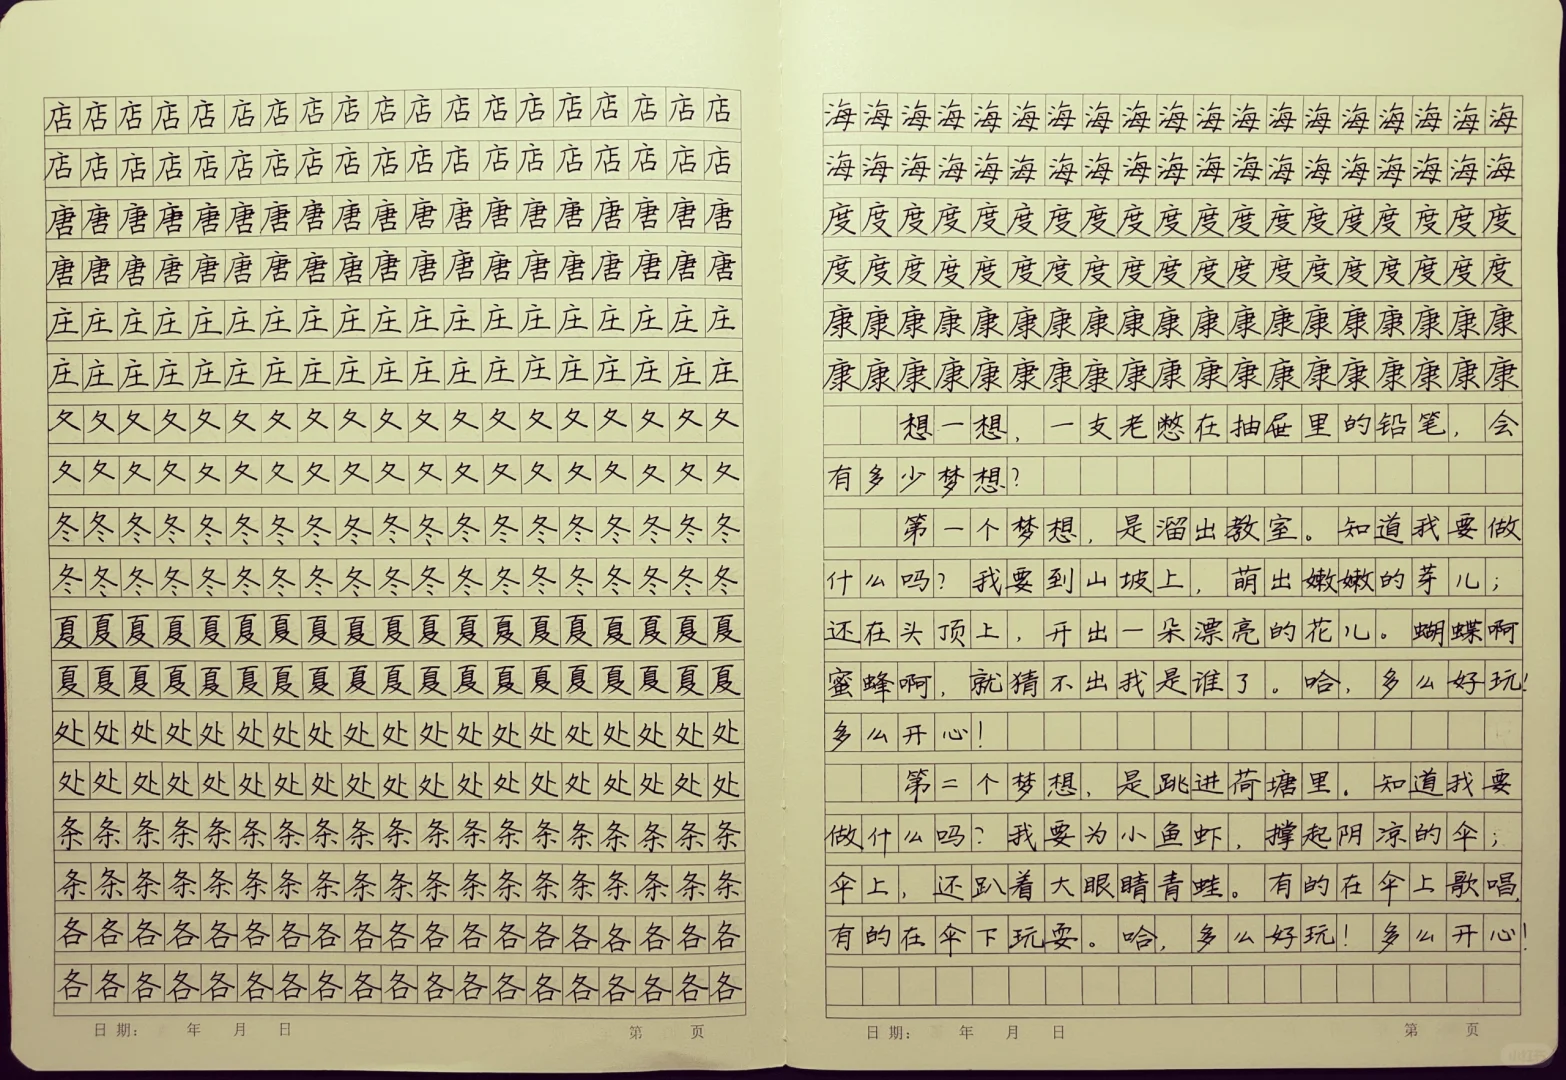 店店店店店店店店店店店店店店店店店店店
店店店店店店店店店店店店店店店店店店店
唐唐唐唐唐唐唐唐唐唐唐唐唐唐唐唐唐唐唐
唐唐唐唐唐唐唐唐唐唐唐唐唐唐唐唐唐唐唐
庄庄庄庄庄庄庄庄庄庄庄庄庄庄庄庄庄庄庄
庄庄庄庄庄庄庄庄庄庄庄庄庄庄庄庄庄庄庄
夂夂夂夂夂夂夂夂夂夂夂夂夂夂夂夂夂夂夂
夂夂夂夂夂夂夂夂夂夂夂夂夂夂夂夂夂夂夂
冬冬冬冬冬冬冬冬冬冬冬冬冬冬冬冬冬冬冬
冬冬冬冬冬冬冬冬冬冬冬冬冬冬冬冬冬冬冬
夏夏夏夏夏夏夏夏夏夏夏夏夏夏夏夏夏夏夏
夏夏夏夏夏夏夏夏夏夏夏夏夏夏夏夏夏夏夏
处处处处处处处处处处处处处处处处处处处
处处处处处处处处处处处处处处处处处处处
条条条条条条条条条条条条条条条条条条条
条条条条条条条条条条条条条条条条条条条
各各各各各各各各各各各各各各各各各各各
各各各各各各各各各各各各各各各各各各各
日期: 年 月 日 第 页
海海海海海海海海海海海海海海海海海海海
海海海海海海海海海海海海海海海海海海海
度度度度度度度度度度度度度度度度度度度
度度度度度度度度度度度度度度度度度度度
康康康康康康康康康康康康康康康康康康康
康康康康康康康康康康康康康康康康康康康
想一想，一支老憋在抽屉里的铅笔，会
有多少梦想？
第一个梦想，是溜出教室。知道我要做
什么吗？我要到山坡上，萌出嫩嫩的芽儿；
还在头顶上，开出一朵漂亮的花儿。蝴蝶啊
蜜蜂啊，就猜不出我是谁了。哈，多么好玩！
多么开心！
第二个梦想，是跳进荷塘里。知道我要
做什么吗？我要为小鱼虾，撑起阴凉的伞；
伞上，还趴着大眼睛青蛙。有的在伞上歌唱，
有的在伞下玩耍。哈，多么好玩！多么开心！
日期: 年 月 日 第 页